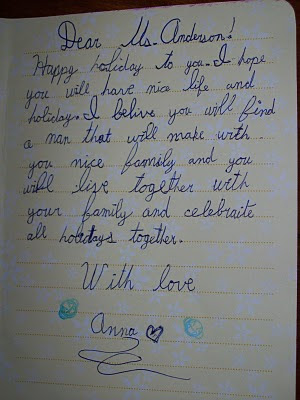 Dear Ms. Anderson!
Happy holiday to you. I hope
you will have nice life and
holiday. I belive you will find
a man that will make with
you nice family and you
will live together with
your family and celebraite
all holidays together.
With love
Anna